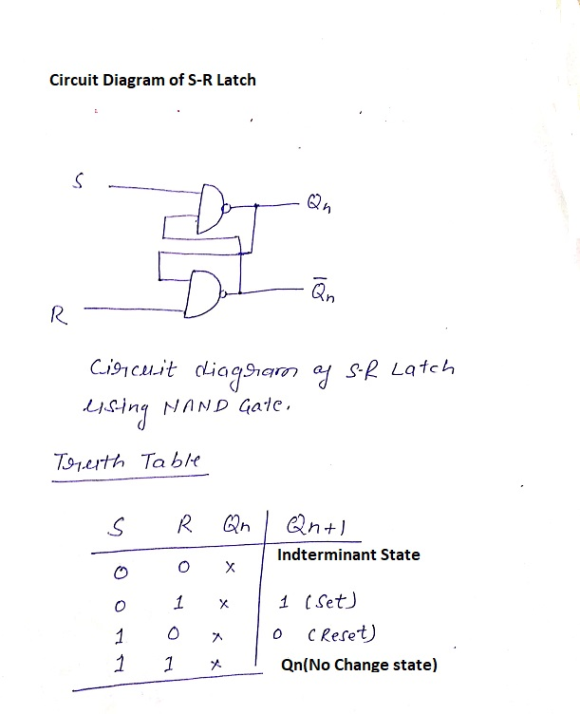 Circuit Diagram of S-R Latch
S
Qn
Q̅n
R
Circuit diagram of S-R Latch
using NAND Gate.
Truth Table
S R Qn Qn+1
Indterminant State
0 0 x
0 1 x 1 (Set)
1 0 x 0 (Reset)
1 1 x Qn(No Change state)